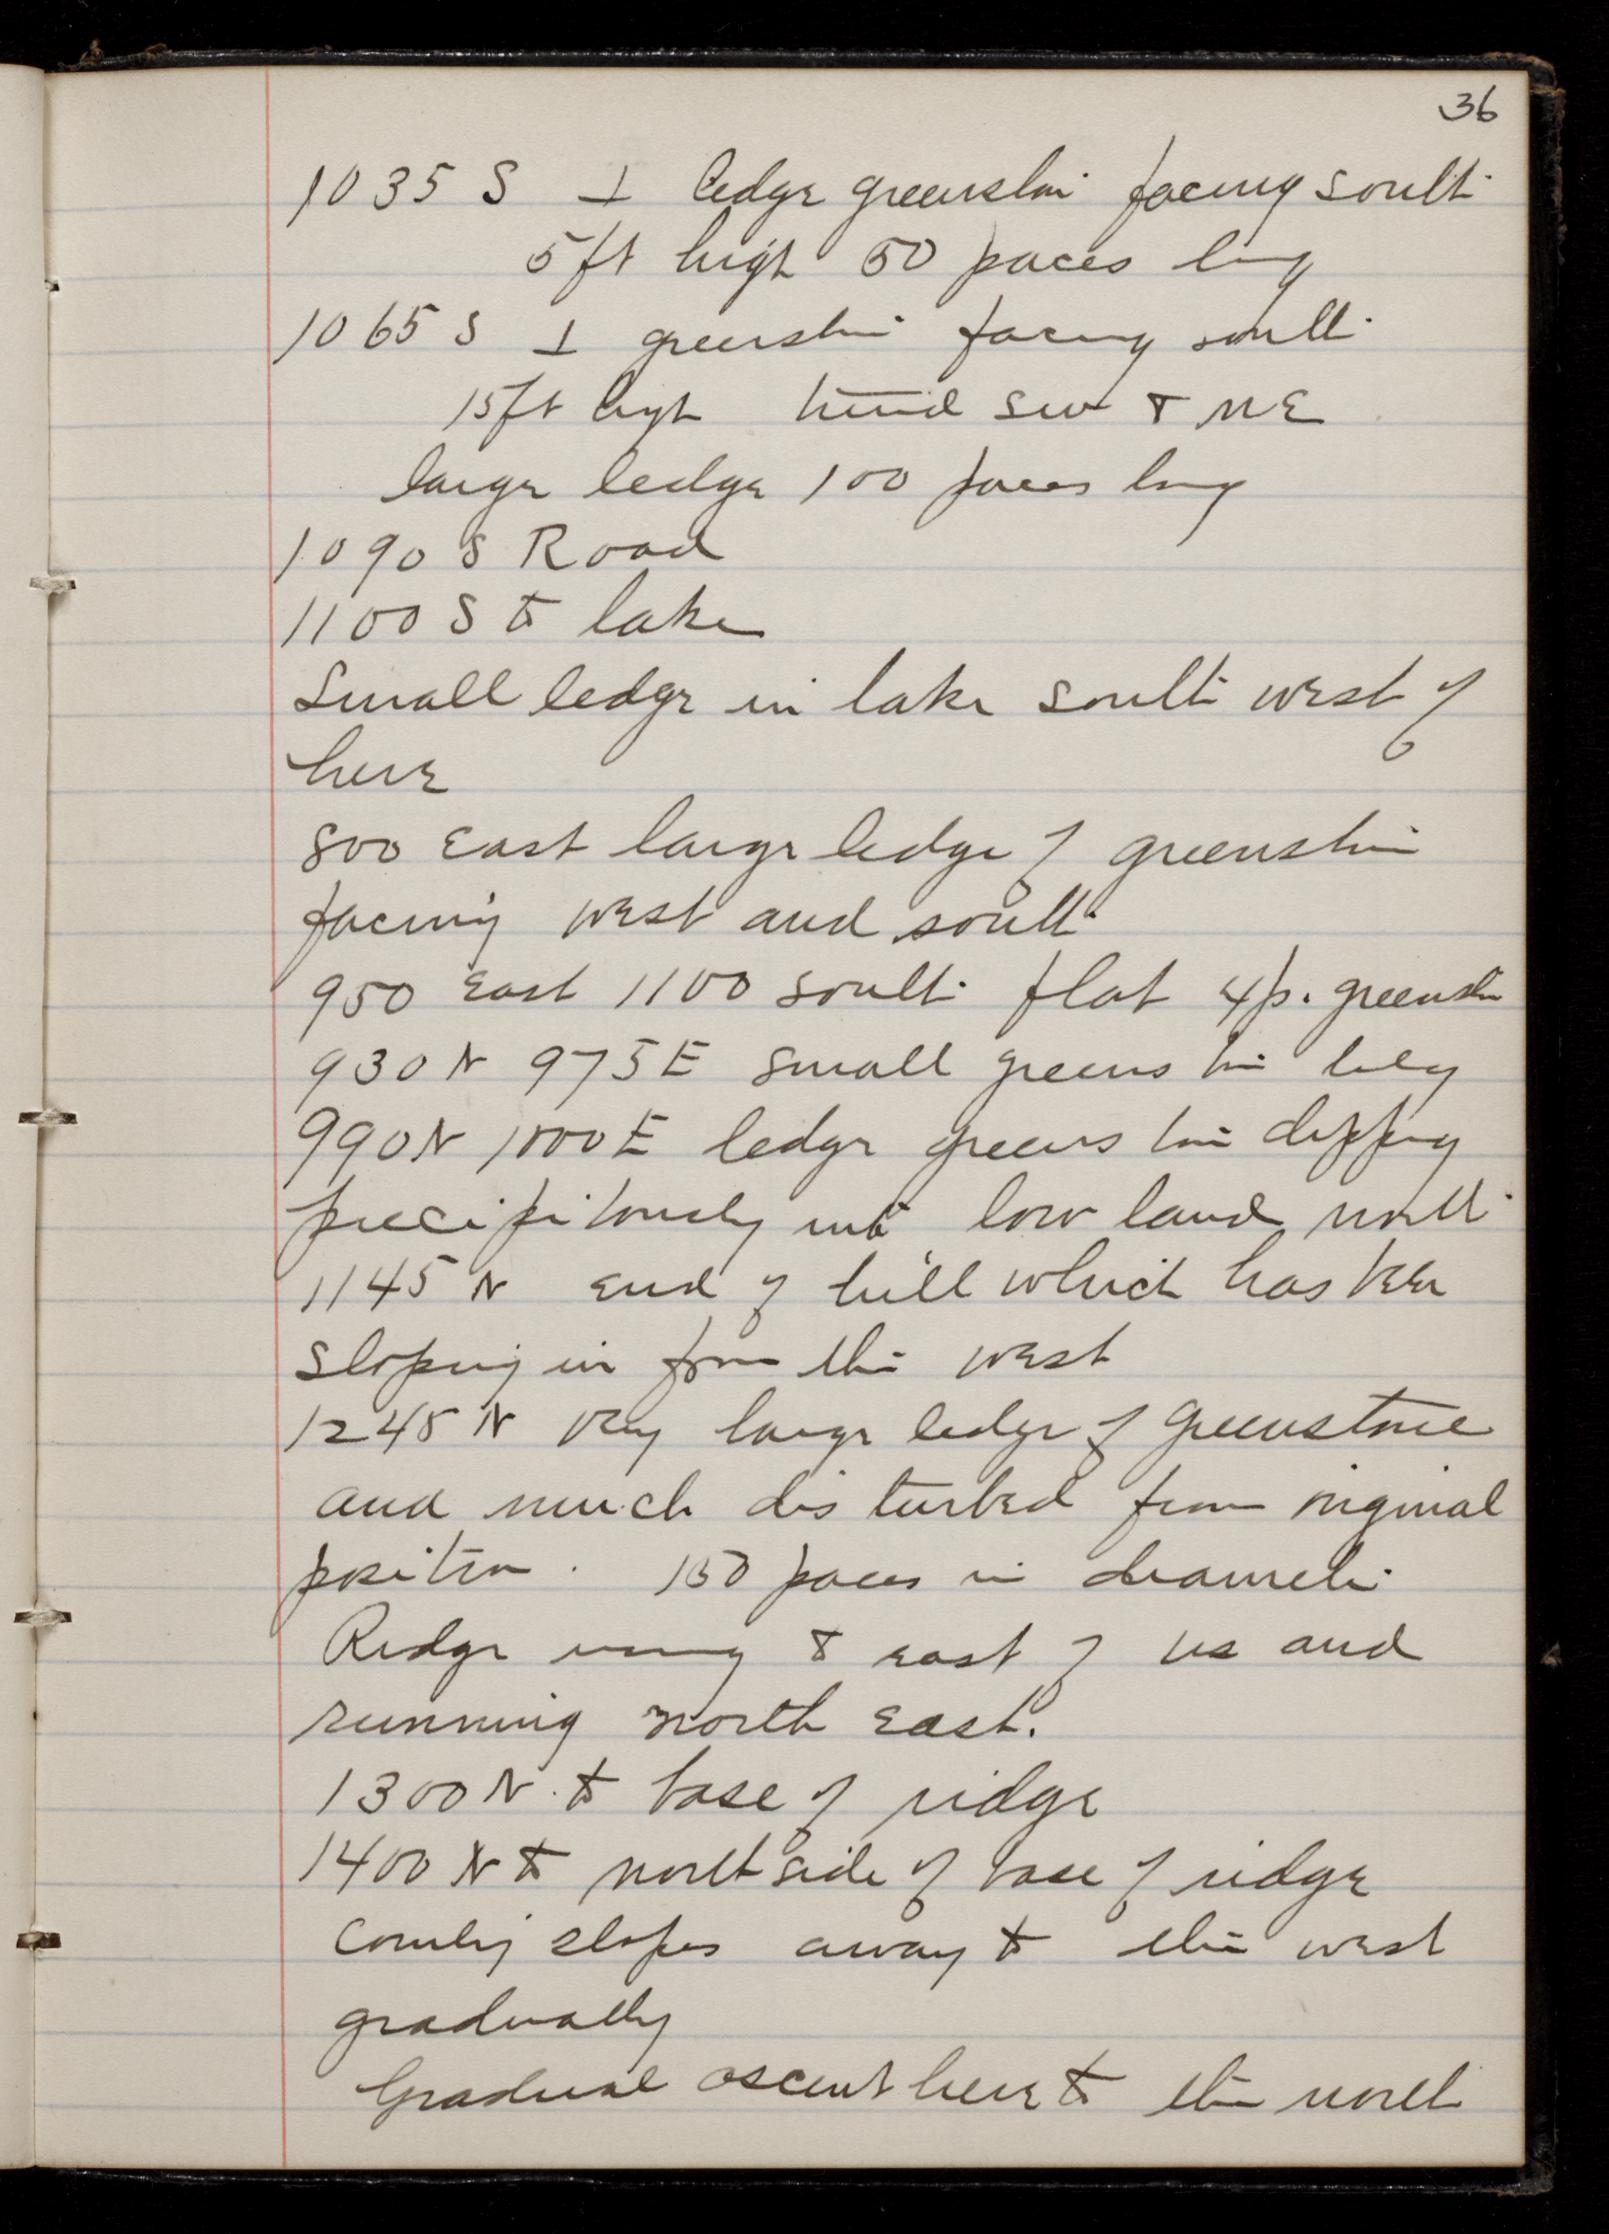 36
1035 S ⊥ ledge greenstone facing south
5ft high 50 paces long
1065 S ⊥ greenstone facing south
15ft high trend SW & NE
large ledge 100 paces long
1090 S Road
1100 S to lake
Small ledge in lake south west of
here
800 East large ledge of greenstone
facing west and south
950 East 1100 south flat 4p. greenstone
930 N 975 E small greenstone
990 N 1000 E ledge greenstone dipping
precipitously into low land north
1145 N end of hill which has been
sloping in from the west
1245 N Very large ledge of Greenstone
and much disturbed from original
position. 150 paces in diameter
Ridge rising to east of us and
running north east.
1300 N. to base of ridge
1400 N to north side of base of ridge
Country slopes away to the west
gradually
Gradual ascent here to the north